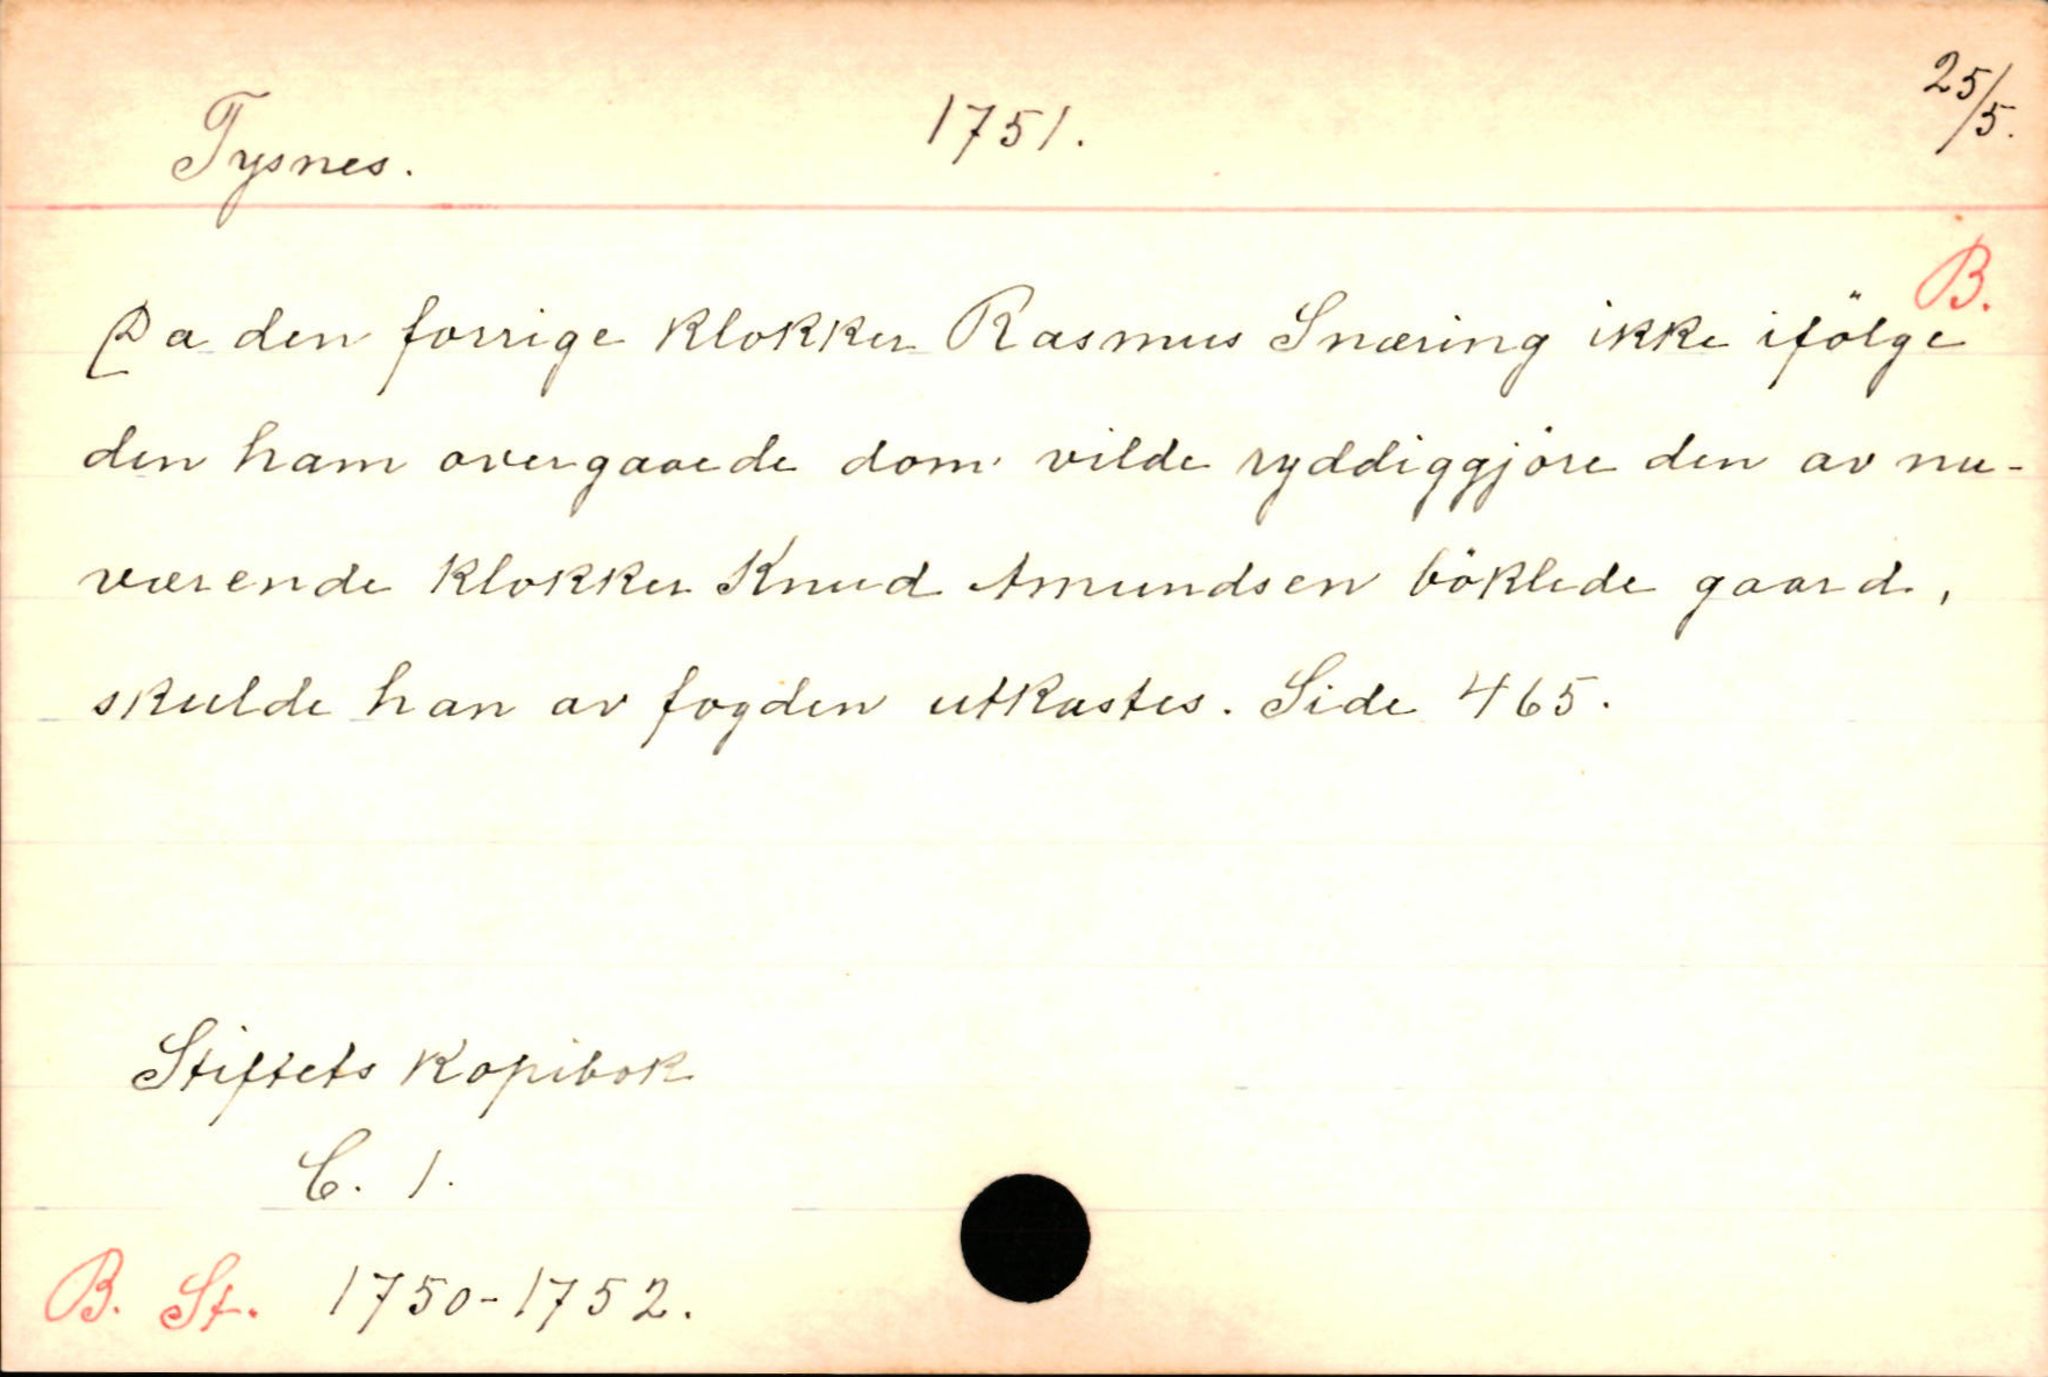 Tysnes. 1751. 25/5.
B.
Da den forrige klokker Rasmus Snæring ikke ifölge
den ham overgaaede dom vilde ryddiggjöre den av nu-
værende klokker Knud Amundsen böklede gaard,
skulde han av fogden utkastes. Side 465.
Stiftets Kopibok
C. 1.
B. St. 1750-1752.